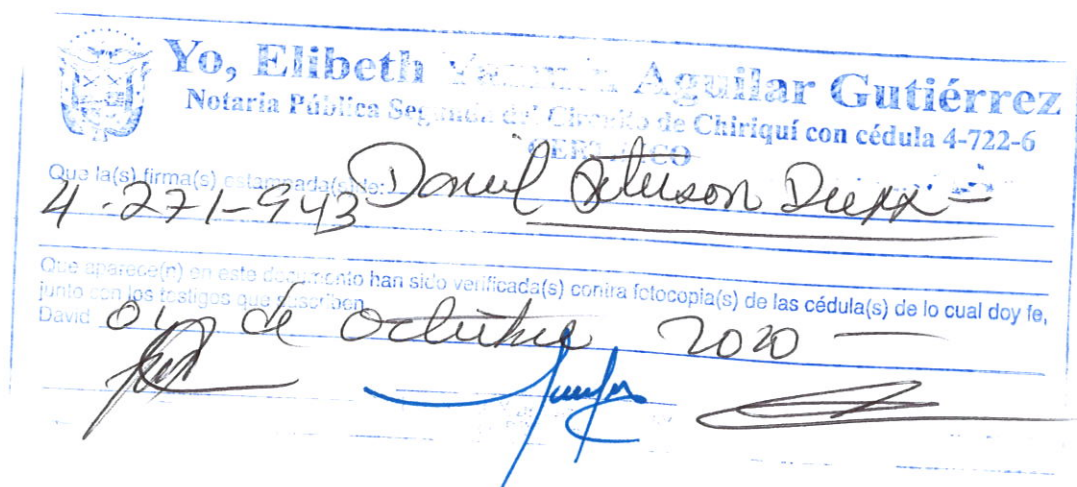 Yo, Elibeth Aguilar Gutiérrez
Notaria Pública Segunda del Circuito de Chiriquí con cédula 4-722-6
CERTIFICO
Que la(s) firma(s) estampada(s) de: Daniel Peterson
4-271-943
Que aparece(n) en este documento han sido verificada(s) contra fotocopia(s) de las cédula(s) de lo cual doy fe,
junto con los testigos que suscriben
David de octubre 2020